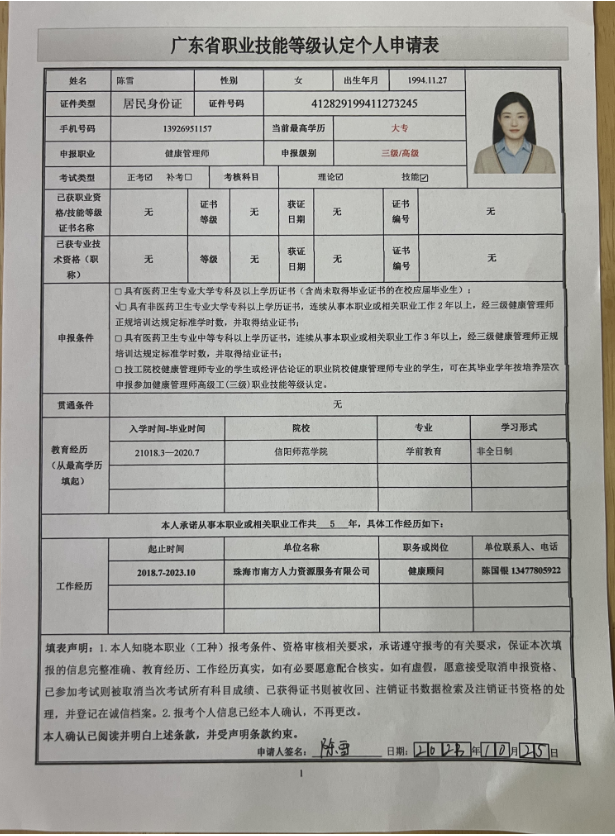 广东省职业技能等级认定个人申请表
姓名 陈雪 性别 女 出生年月 1994.11.27
证件类型 居民身份证 证件号码 412829199411273245
手机号码 13926951157 当前最高学历 大专
申报职业 健康管理师 申报级别 三级/高级
考试类型 正考☑ 补考☐ 考核科目 理论☑ 技能☑
已获职业资格/技能等级证书名称 无 证书等级 无 获证日期 无 证书编号 无
已获专业技术资格（职称） 无 等级 无 获证日期 无 证书编号 无
申报条件
☐具有医药卫生专业大学专科及以上学历证书（含尚未取得毕业证书的在校应届毕业生）；
√☐具有非医药卫生专业大学专科以上学历证书，连续从事本职业或相关职业工作2年以上，经三级健康管理师
正规培训达规定标准学时数，并取得结业证书；
☐具有医药卫生专业中等专科以上学历证书，连续从事本职业或相关职业工作3年以上，经三级健康管理师正规
培训达规定标准学时数，并取得结业证书；
☐技工院校健康管理师专业的学生或经评估论证的职业院校健康管理师专业的学生，可在其毕业学年按培养层次
申报参加健康管理师高级工(三级)职业技能等级认定。
贯通条件 无
教育经历（从最高学历填起）
入学时间-毕业时间 院校 专业 学习形式
21018.3—2020.7 信阳师范学院 学前教育 非全日制
本人承诺从事本职业或相关职业工作共 5 年，具体工作经历如下：
工作经历
起止时间 单位名称 职务或岗位 单位联系人、电话
2018.7-2023.10 珠海市南方人力资源服务有限公司 健康顾问 陈国银 13477805922
填表声明：1.本人知晓本职业（工种）报考条件、资格审核相关要求，承诺遵守报考的有关要求，保证本次填
报的信息完整准确、教育经历、工作经历真实，如有必要愿意配合核实。如有虚假，愿意接受取消申报资格、
已参加考试则被取消当次考试所有科目成绩、已获得证书则被收回、注销证书数据检索及注销证书资格的处
理，并登记在诚信档案。2.报考个人信息已经本人确认，不再更改。
本人确认已阅读并明白上述条款，并受声明条款约束。
申请人签名：陈雪 日期：2023年10月25日
1